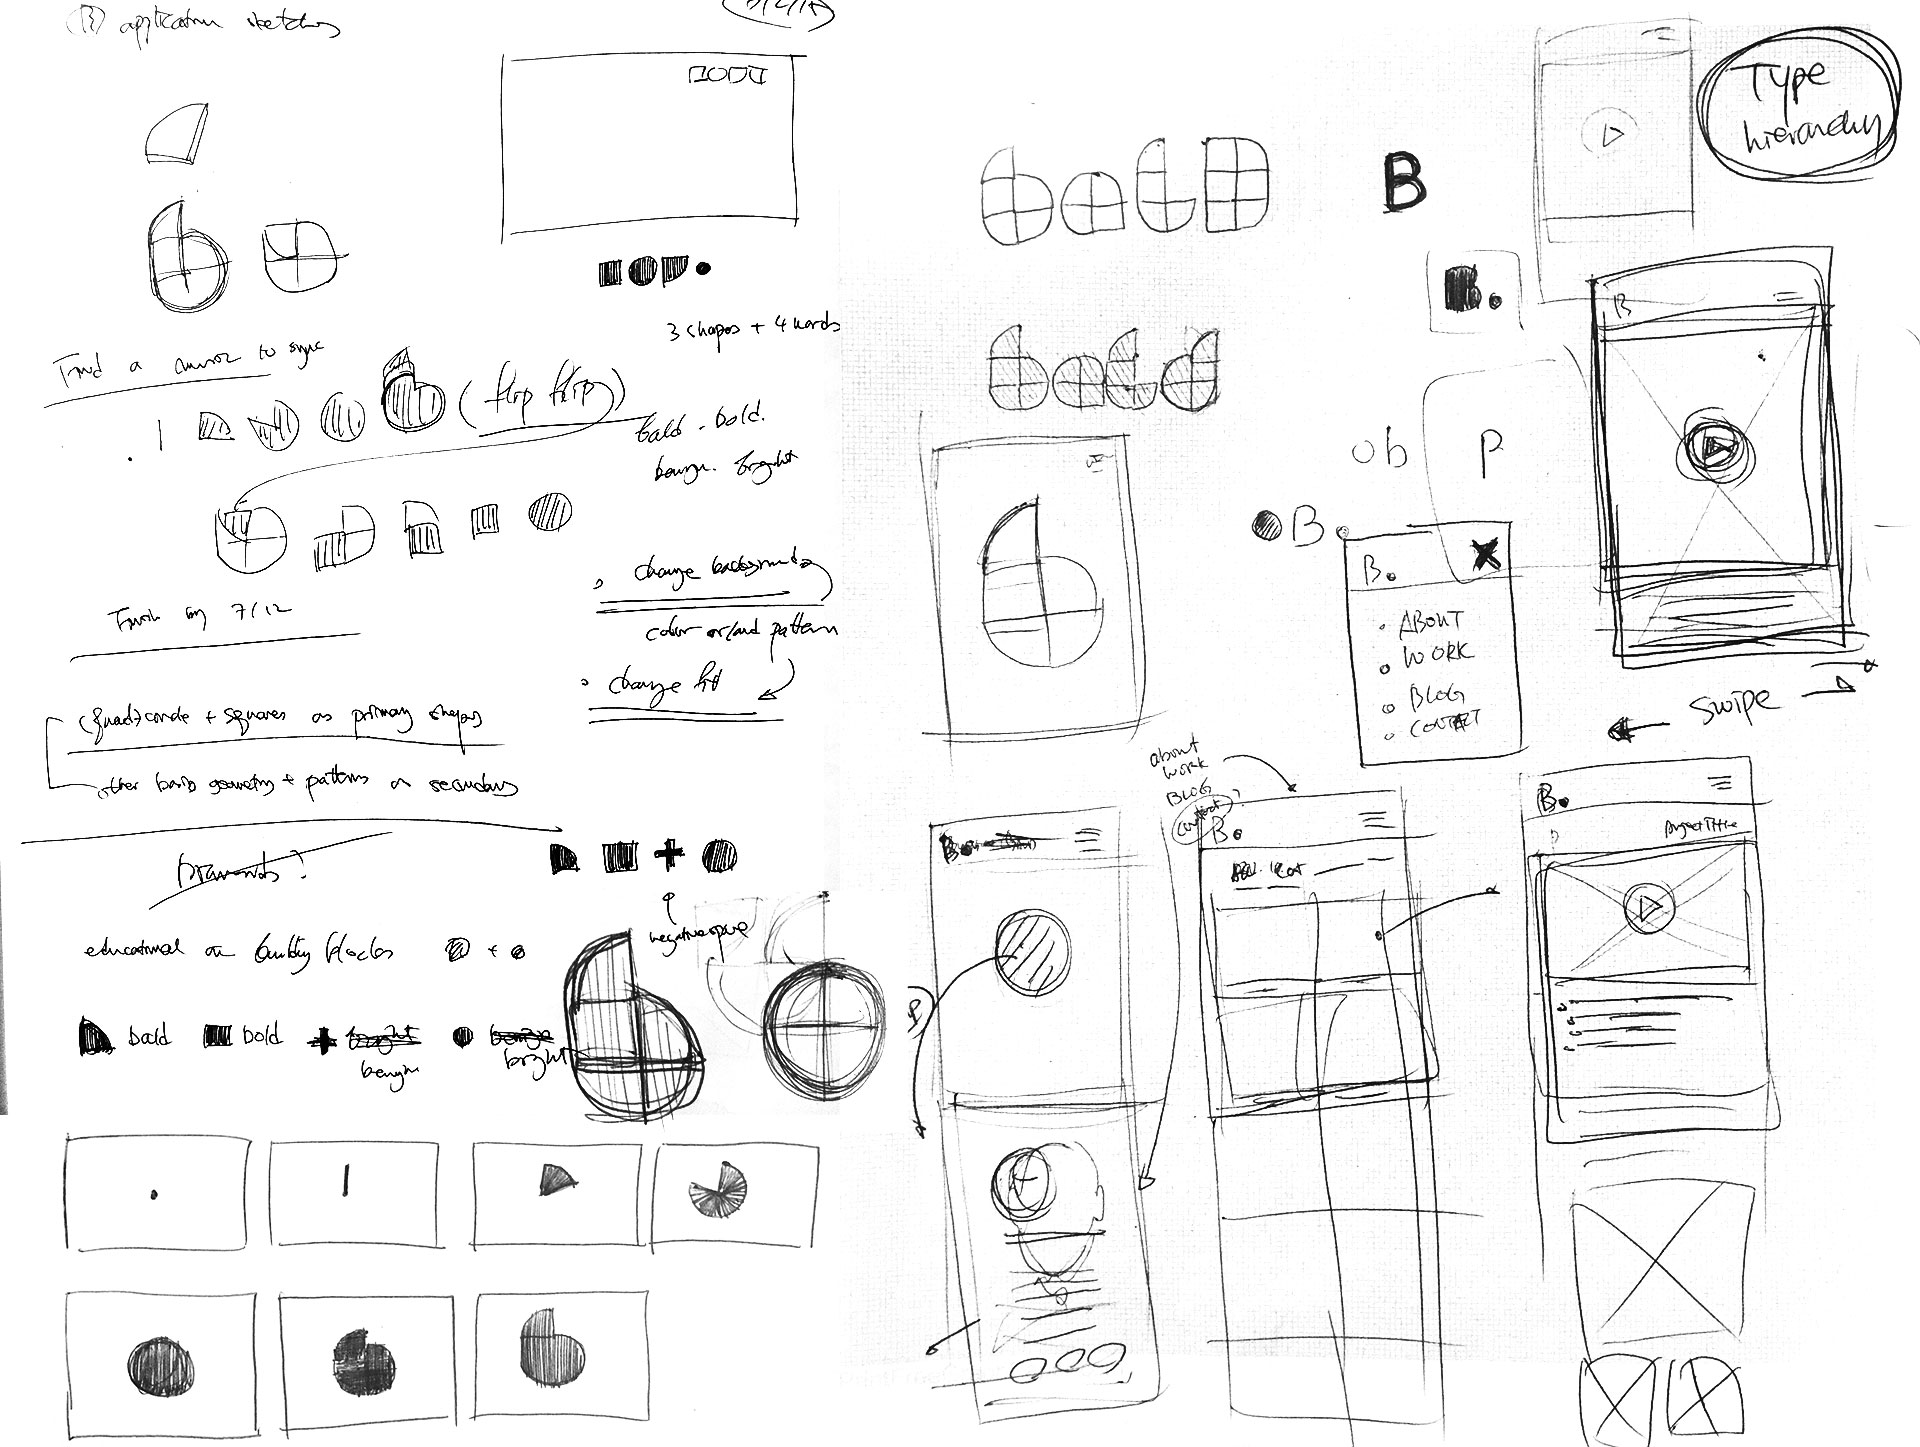 application sketches
3 shapes + 4 words
Find a cursor to sync
(flip flip)
bald . bold.
benign. bright
change background
color or/and pattern
change
by 7/12
(quad) circle + squares as primary shapes
other basic geometry + patterns as secondary
educational on building blocks
+
negative space
bald
bold
bright
benign
benign
bright
bald
B
Type
hierarchy
bald
B.
B
ob
p
B.
B.
ABOUT
WORK
BLOG
CONTACT
swipe
about
work
BLOG
contact
?
B.
B.
project title